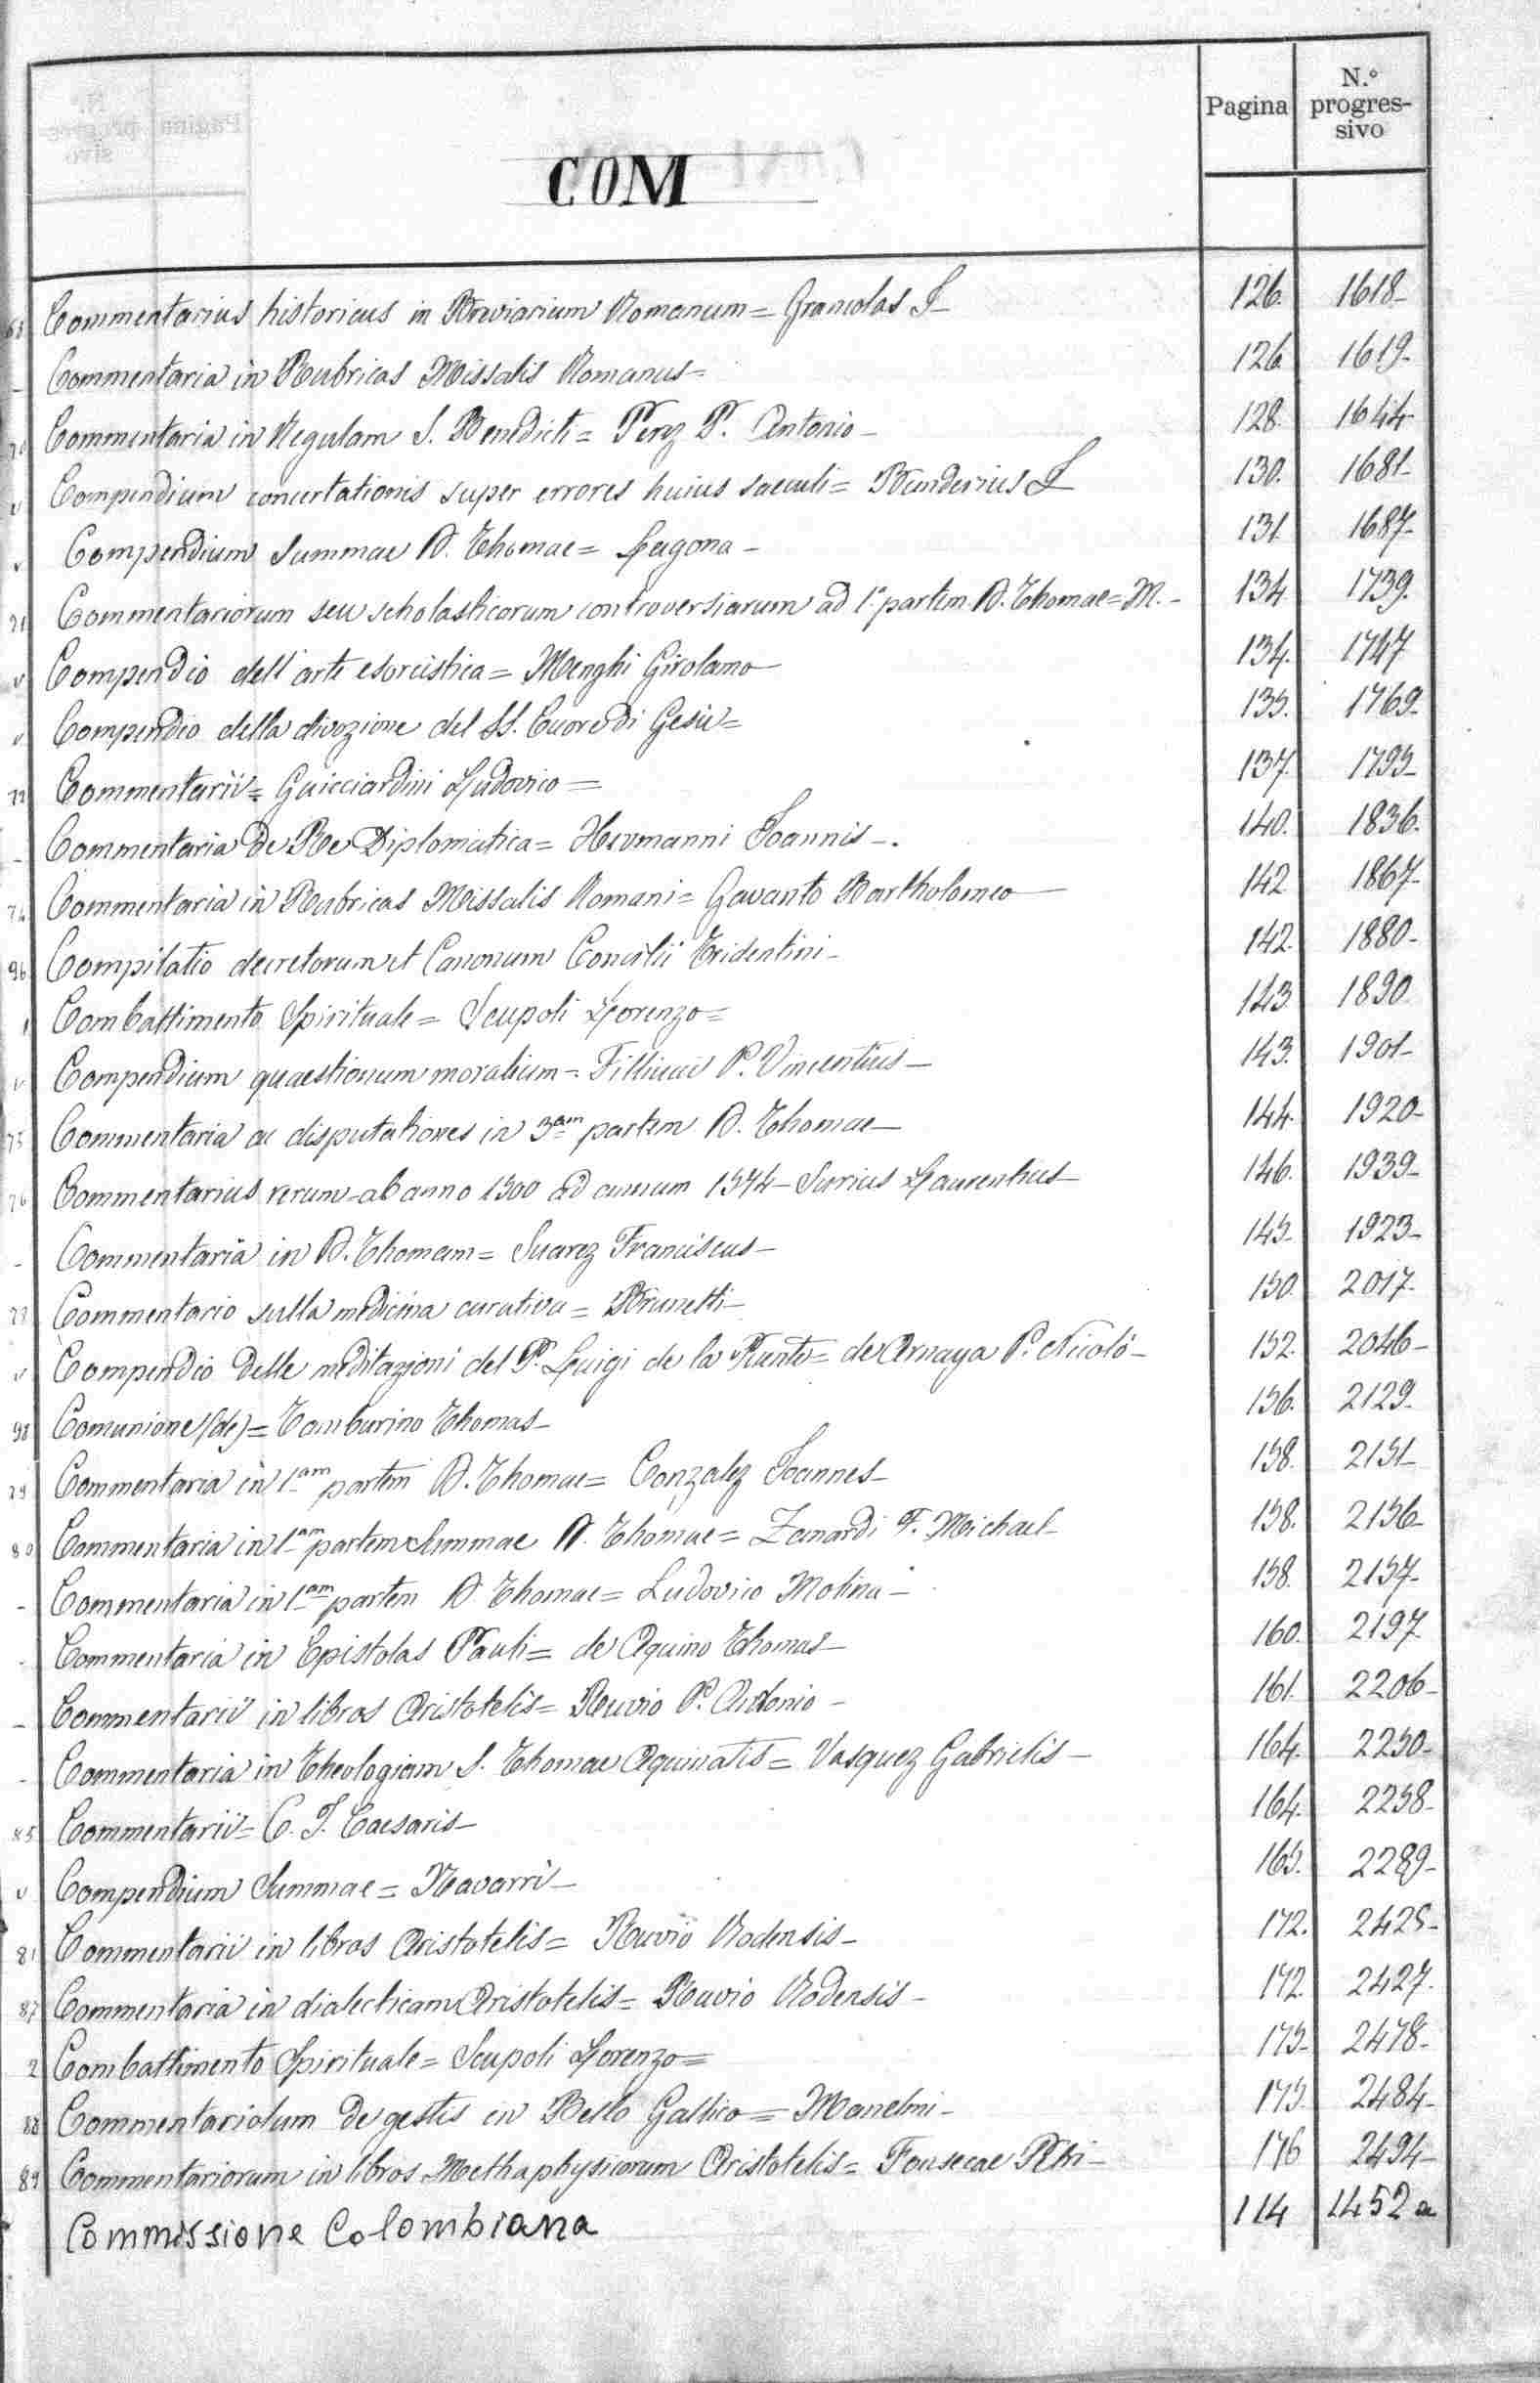 Pagina N.° progres-sivo
COM
Commentarius historicus in Breviarium Romanum = Grancolas J - 126. 1618-
- Commentaria in Rubricas Missalis Romanus = 126 1619-
Commentaria in Regulam S. Benedicti = Perez P. Antonio - 128. 1644-
v Compendium concertationis super errores huius saeculi = Bunderius J 130. 1681-
v Compendium Summae D. Thomae = Lugona - 131 1687-
Commentariorum seu scholasticarum controversiarum ad 1.a partem D. Thomae = M. - 134 1739.
v Compendio dell'arte esorcistica = Menghi Girolamo - 134. 1747
v Compendio della divozione del SS. Cuore di Gesù = 135. 1769-
Commentarii = Guicciardini Ludovico = 137. 1795-
- Commentaria de Re Diplomatica = Hermanni Joannis -. 140. 1836.
74 Commentaria in Rubricas Missalis Romani = Gavanto Bartholomeo - 142 1867-
96 Compilatio decretorum et Canonum Concilii Tridentini - 142. 1880-
1 Combattimento Spirituale = Scupoli Lorenzo = 143 1890
v Compendium quaestionum moralium = Filliucii P. Vincentius - 143. 1901-
75 Commentaria ac disputationes in 3am partem D. Thomae - 144. 1920-
76 Commentarius rerum ab anno 1500 ad annum 1574 - Surius Laurentius - 146. 1939-
- Commentaria in D. Thomam = Suarez Franciscus - 145- 1923-
Commentario sulla medicina curativa = Brunetti - 150. 2017-
v Compendio delle meditazioni del P. Luigi de la Puente = de Arnaya P. Nicolò - 152. 2046-
98 Comunione (de) = Tamburino Thomas - 156. 2129-
79 Commentaria in 1am partem D. Thomae = Gonzalez Joannes - 158. 2151-
80 Commentaria in 1am partem Summae D. Thomae = Zanardi F. Michael - 158. 2156-
- Commentaria in 1am partem D. Thomae = Ludovico Molina - 158. 2157-
- Commentaria in Epistolas Pauli = de Aquino Thomas - 160. 2197
- Commentarii in libros Aristotelis = Ruvio P. Antonio - 161. 2206-
- Commentaria in Theologiam S. Thomae Aquinatis = Vasquez Gabrielis - 164. 2250-
85 Commentarii = C. J. Caesaris - 164. 2258-
v Compendium Summae = Navarri - 165. 2289-
81 Commentarii in libros Aristotelis = Ruvio Rodensis - 172. 2425-
87 Commentaria in dialecticam Aristotelis = Ruvio Rodensis - 172. 2427.
2 Combattimento Spirituale = Scupoli Lorenzo = 175- 2478-
88 Commentariolum de gestis in Bello Gallico = Manelmi - 175. 2484-
89 Commentariorum in libros Methaphysicorum Aristotelis = Fonsecae Petri - 176 2494-
Commissione Colombiana 114 1452 a